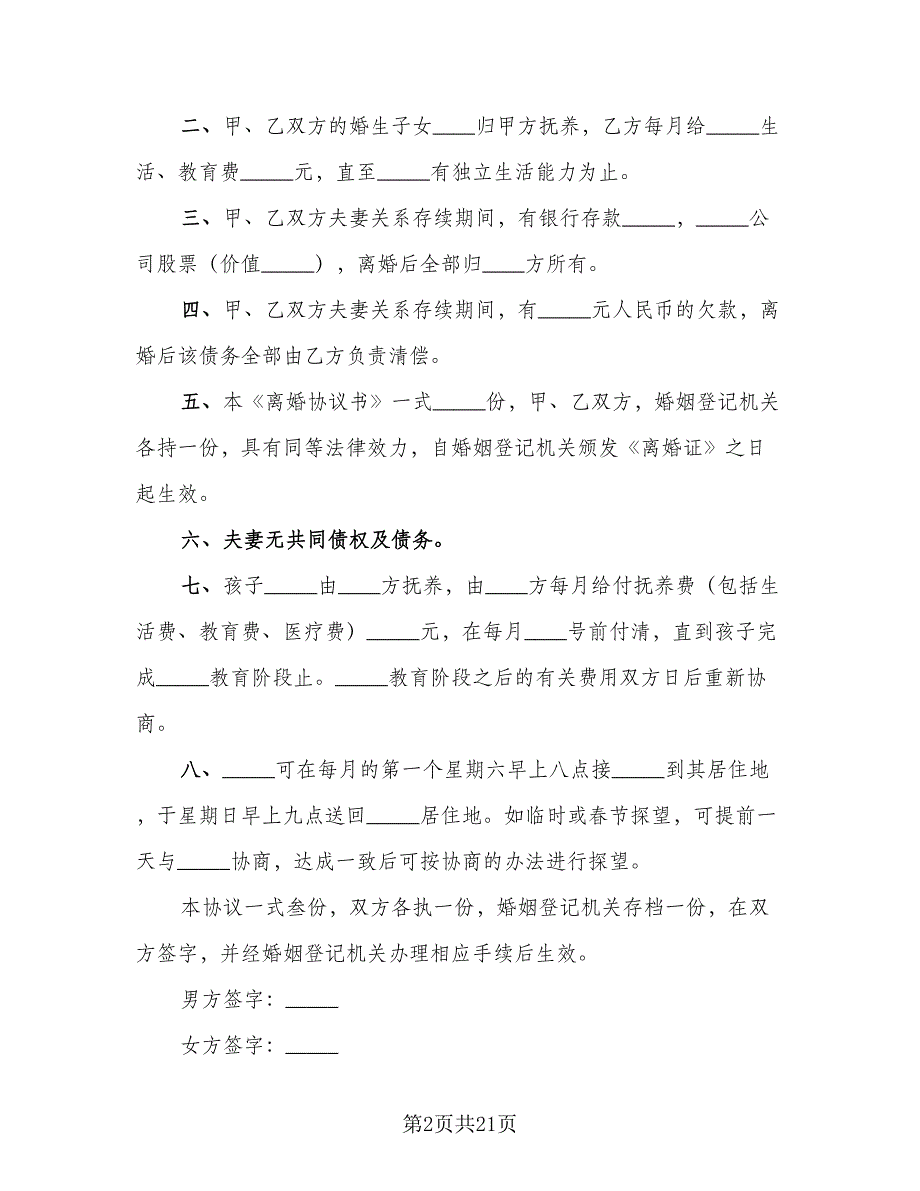 二、甲、乙双方的婚生子女____归甲方抚养，乙方每月给_____生
活、教育费_____元，直至_____有独立生活能力为止。
三、甲、乙双方夫妻关系存续期间，有银行存款_____，_____公
司股票（价值_____），离婚后全部归____方所有。
四、甲、乙双方夫妻关系存续期间，有_____元人民币的欠款，离
婚后该债务全部由乙方负责清偿。
五、本《离婚协议书》一式_____份，甲、乙双方，婚姻登记机关
各持一份，具有同等法律效力，自婚姻登记机关颁发《离婚证》之日
起生效。
六、夫妻无共同债权及债务。
七、孩子_____由____方抚养，由____方每月给付抚养费（包括生
活费、教育费、医疗费）_____元，在每月____号前付清，直到孩子完
成_____教育阶段止。_____教育阶段之后的有关费用双方日后重新协
商。
八、_____可在每月的第一个星期六早上八点接_____到其居住地
，于星期日早上九点送回_____居住地。如临时或春节探望，可提前一
天与_____协商，达成一致后可按协商的办法进行探望。
本协议一式叁份，双方各执一份，婚姻登记机关存档一份，在双
方签字，并经婚姻登记机关办理相应手续后生效。
男方签字：_____
女方签字：_____
第2页共21页